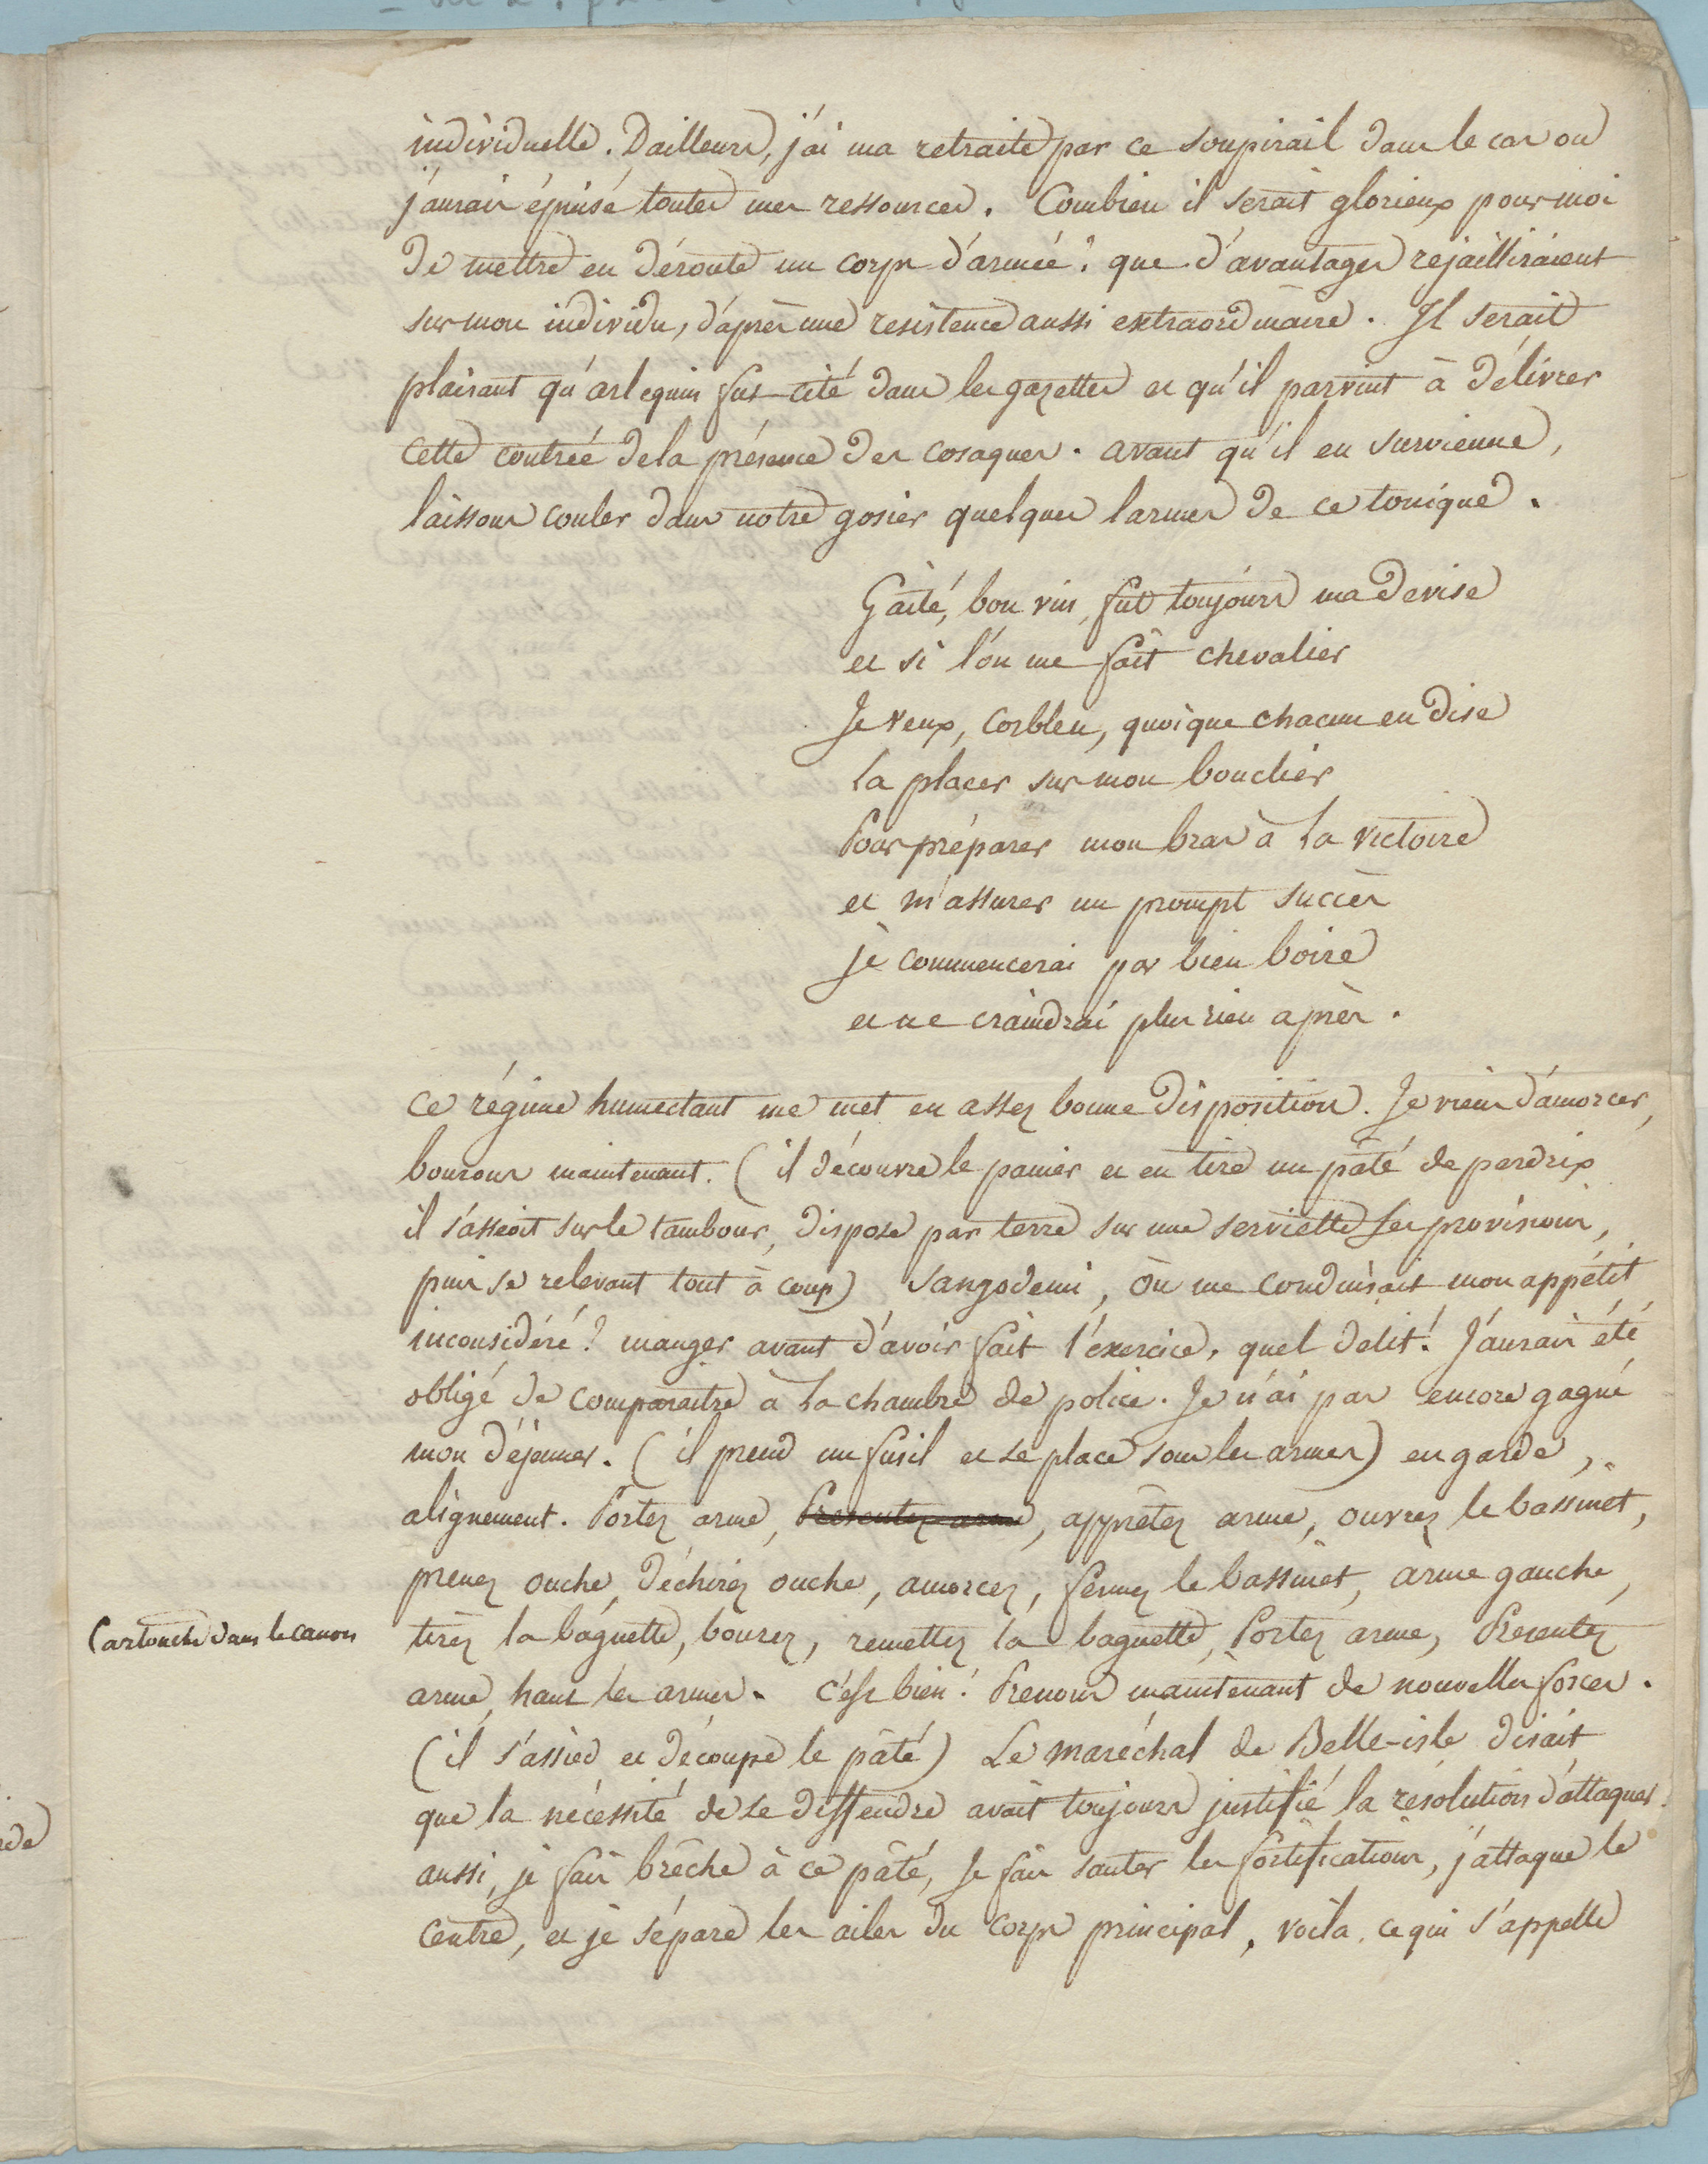 individuelle. Dailleurs, j'ai ma retraite par ce soupirail dans le cas ou
j'aurais épuisé toutes mes ressources. Combien il serait glorieux pour moi
de mettre en déroute un corps d'armée! que d'avantages rejailliraient
sur mon individu, d'après une resistence aussi extraordinaire. Il serait
plaisant qu'arlequin fut cité dans les gazettes et qu'il parvint à délivrer
cette contrée de la présence des cosaques. avant qu'il en survienne,
laissons couler dans notre gosier quelques larmes de ce tonique.
Gaité, bon vin, fut toujours ma devise
et si l'on me fait chevalier
Je veux, corbleu, quoique chacun en dise
la placer sur mon bouclier
Pour préparer mon bras à la victoire
et m'assurer un prompt succès
je commencerai par bien boire
et ne craindrai plus rien après.
ce régime humectant me met en assez bonne disposition. Je viens d'amorcer,
bourons maintenant. (il découvre le panier et en tire un pâté de perdrix
il s'asseoit sur le tambour, dispose par terre sur une serviette ses provisions,
puis se relevant tout à coup) Sangodemi, où me conduisait mon appétit
inconsidéré? manger avant d'avoir fait l'éxercice, quel delit! J'aurais été
obligé de comparaitre à la chambre de police. Je n'ai pas encore gagné
mon déjeuner. (il prend un fusil et se place sous les armes) en garde,
alignement. Portez arme, Presentez arme, apprêtez arme, ouvrez le bassinet,
prenez ouche, déchirez ouche, amorcez, fermez le bassinet, arme gauche,
Cartouche dans le canon
tirez la baguette, bourez, remettez la baguette, Portez arme, Presentez
arme, haut les armes. c'est bien! Prenons maintenant de nouvelles forces.
(il s'assied et découpe le pâté) Le maréchal de Belle-isle disait
que la nécessité de se deffendre avait toujours justifié la résolution d'attaquer.
aussi, je fais brêche à ce pâté, je fais sauter les fortifications, j'attaque le
centre, et je sépare les ailes du corps principal, voila ce qui s'appelle